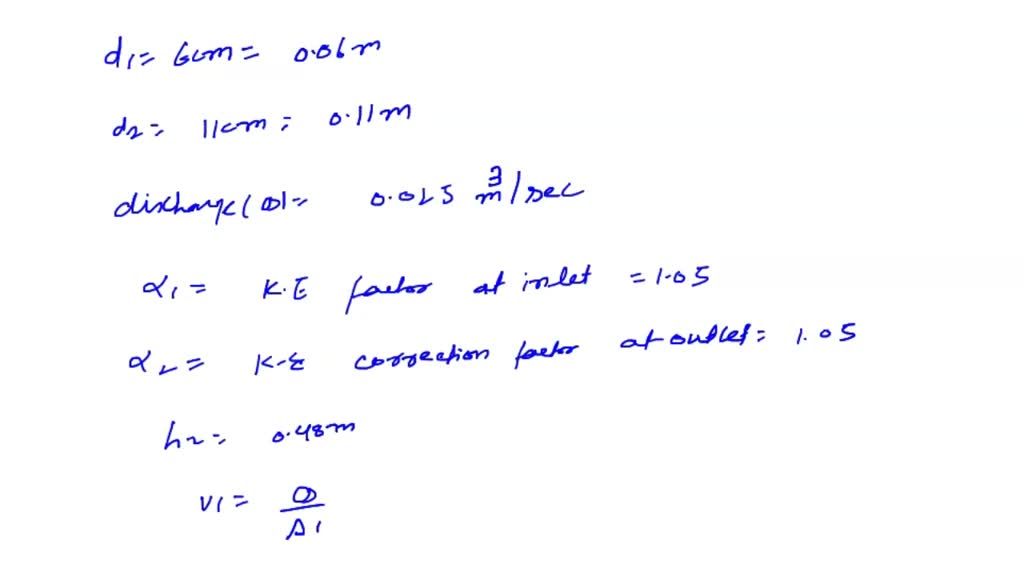 d1 = 6cm = 0.06m
d2 = 11cm = 0.11m
discharge (Q) = 0.025 m³/sec
α1 = K.E factor at inlet = 1.05
α2 = K-E correction factor at outlet = 1.05
h2 = 0.48m
V1 = Q
A1